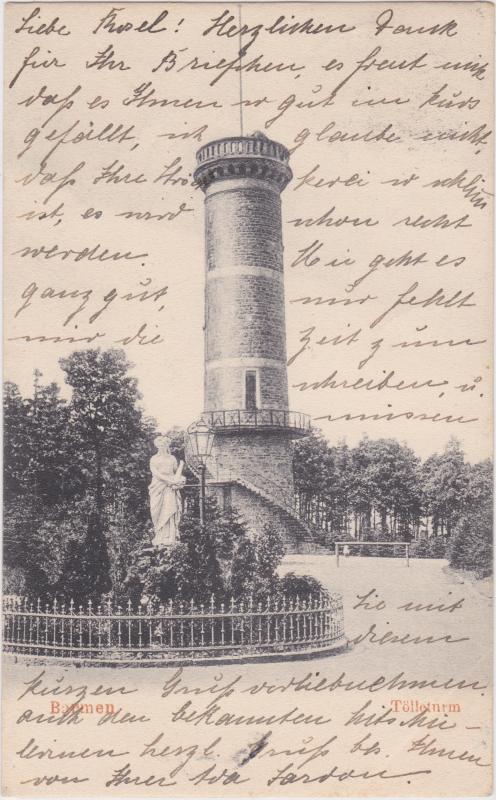 Liebe Rosel! Herzlichen Dank
für Ihr Briefchen, es freut mich
daß es Ihnen so gut im Kurs
gefällt, ich glaube nicht,
daß Ihre Strickerei so schlim
ist, es wird schon recht
werden. Mir geht es
ganz gut, nur fehlt
mir die Zeit zum
schreiben, u.
müssen
Sie mit
diesem
kurzen Gruß vorliebnehmen.
Barmen. Tölleturm
auch den bekannten mitschü-
lerinnen herzl. Gruß bes. Ihnen
von Ihrer Ida